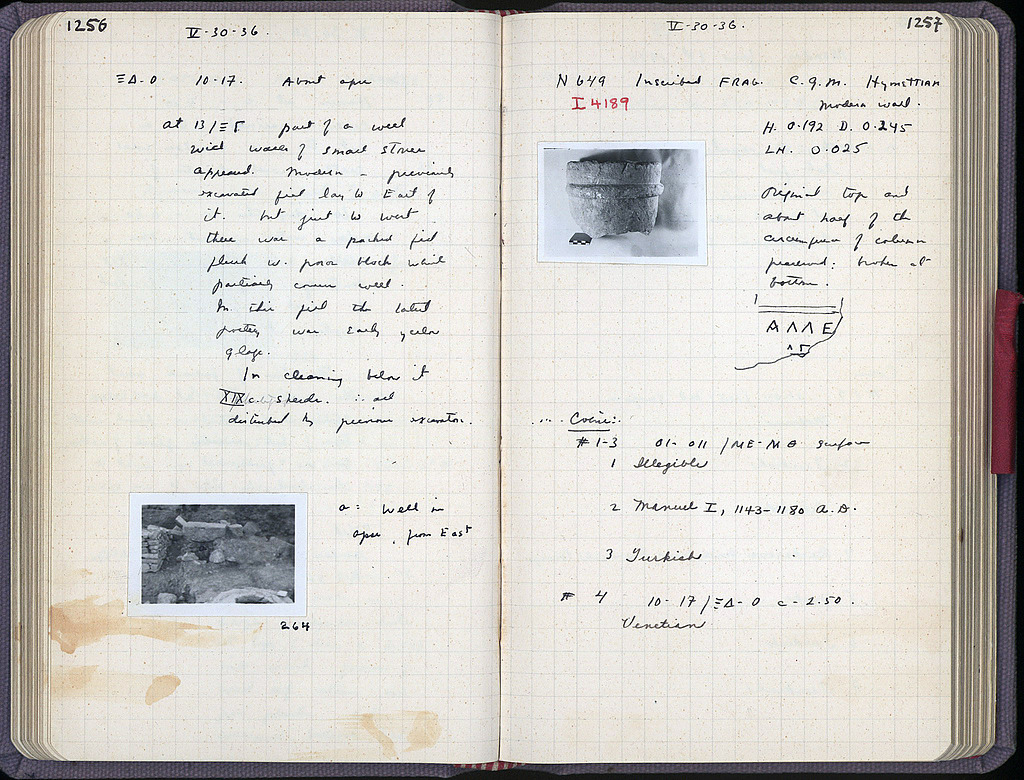 1256
V-30-36.
ΞΔ-Ο 10-17. About apse
at 13/ΞΓ part of a well
with walls of small stones
appeared. Modern - previously
excavated fill lay to East of
it. but just to west
there was a packed fill
flush w. poros block which
partially covers well.
In this fill the latest
pottery was Early yellow
glaze.
In cleaning below it
XIX c. sherds. ∴ all
disturbed by previous excavators.
a: Well in
apse, from East
264
V-30-36.
1257
N 649 Inscribed FRAG. C.g.m. HymeTTIAN
I 4189
Modern wall.
H. 0.192 D. 0.245
LH. 0.025
Original top and
about half of the
circumference of column
preserved: broken at
bottom.
Α Λ Λ Ε
Λ Γ
Coins:
#1-3 01-011 /ME-MΘ surface
1 Illegible
2 Manuel I, 1143-1180 A.D.
3 Turkish
# 4 10-17/ΞΔ-Ο c-2.50.
Venetian